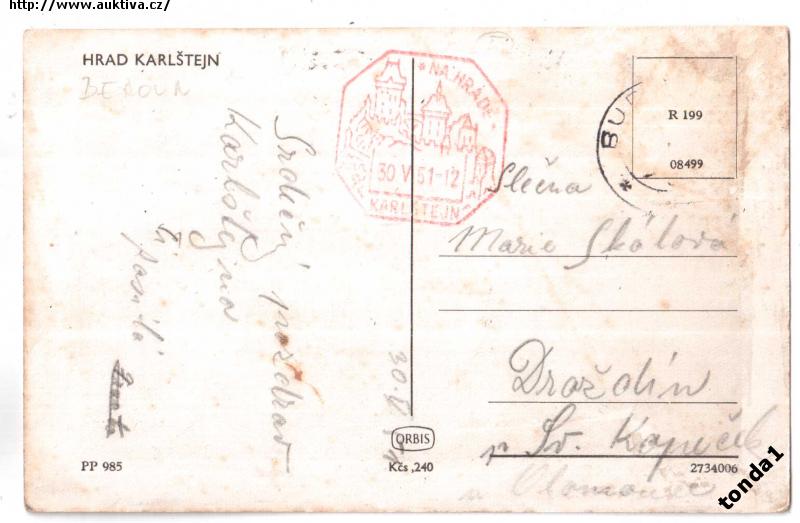 http://www.auktiva.cz/
HRAD KARLŠTEJN
BEROUN
Srdečný pozdrav
Karlštejna
Ti posílá
30.V. 51
NA HRADĚ
30 V 51-12
KARLŠTEJN
BU
R 199
08499
Slečna
Marie Skálová
Droždín
p. Sv. Kopeček
u Olomouce
ORBIS
Kčs ,240
PP 985
2734006
tonda1